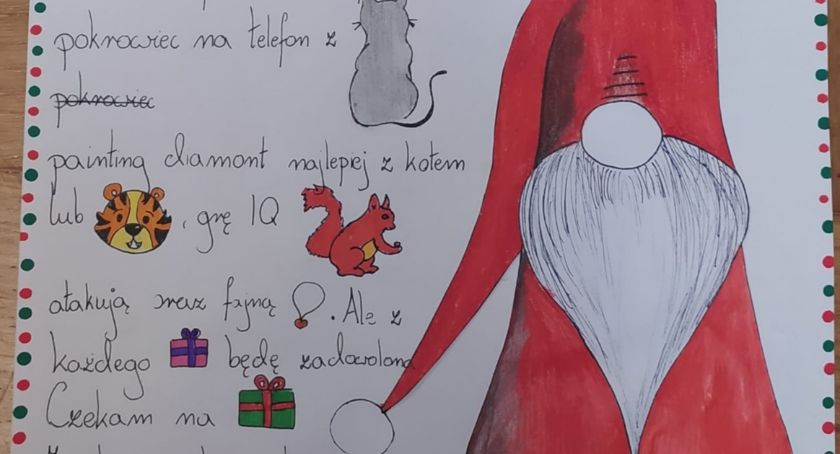 pokrowiec na telefon z
pokrowiec
painting diamont najlepiej z kotem
lub , grę IQ
atakują oraz fajną . Ale z
każdego będę zadowolona
Czekam na